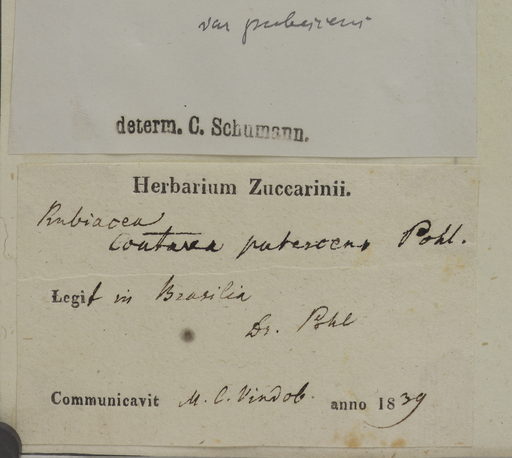 var pubescens
determ. C. Schumann.
Herbarium Zuccarinii.
Rubiacea
Coutarea pubescens Pohl.
Legit in Brasilia
Dr. Pohl
Communicavit M. C. Vindob. anno 1839